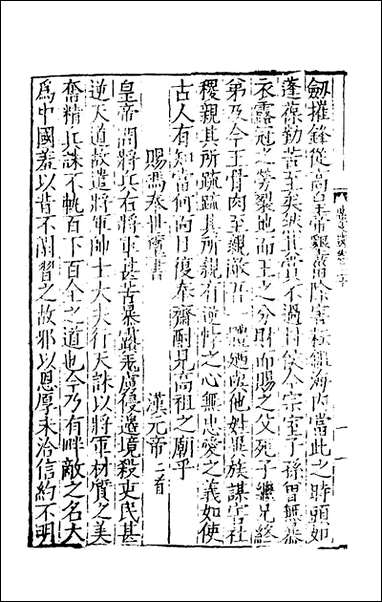 劍摧鋒從高皇帝艱菑除害耘鉏海內當此之時頭如
蓬葆勤苦至矣然其賞不過封侯今宗室子孫曾無暴
衣露冠之勞裂地而王之分財而賜之父死子繼兄終
弟及今王骨肉至親敵吾一體廼與他姓異族謀害社
稷親其所疏疏其所親有逆悖之心無忠愛之義如使
古人有知當何面目復奉齋酎見高祖之廟乎
賜馮奉世璽書 漢元帝二首
皇帝問將兵右將軍甚苦暴露羌虜侵邊境殺吏民甚
逆天道故遣將軍帥士大夫行天誅以將軍材質之美
奮精兵誅不軌百下百全之道也今乃有畔敵之名大
為中國羞以昔不閑習之故邪以恩厚未洽信約不明